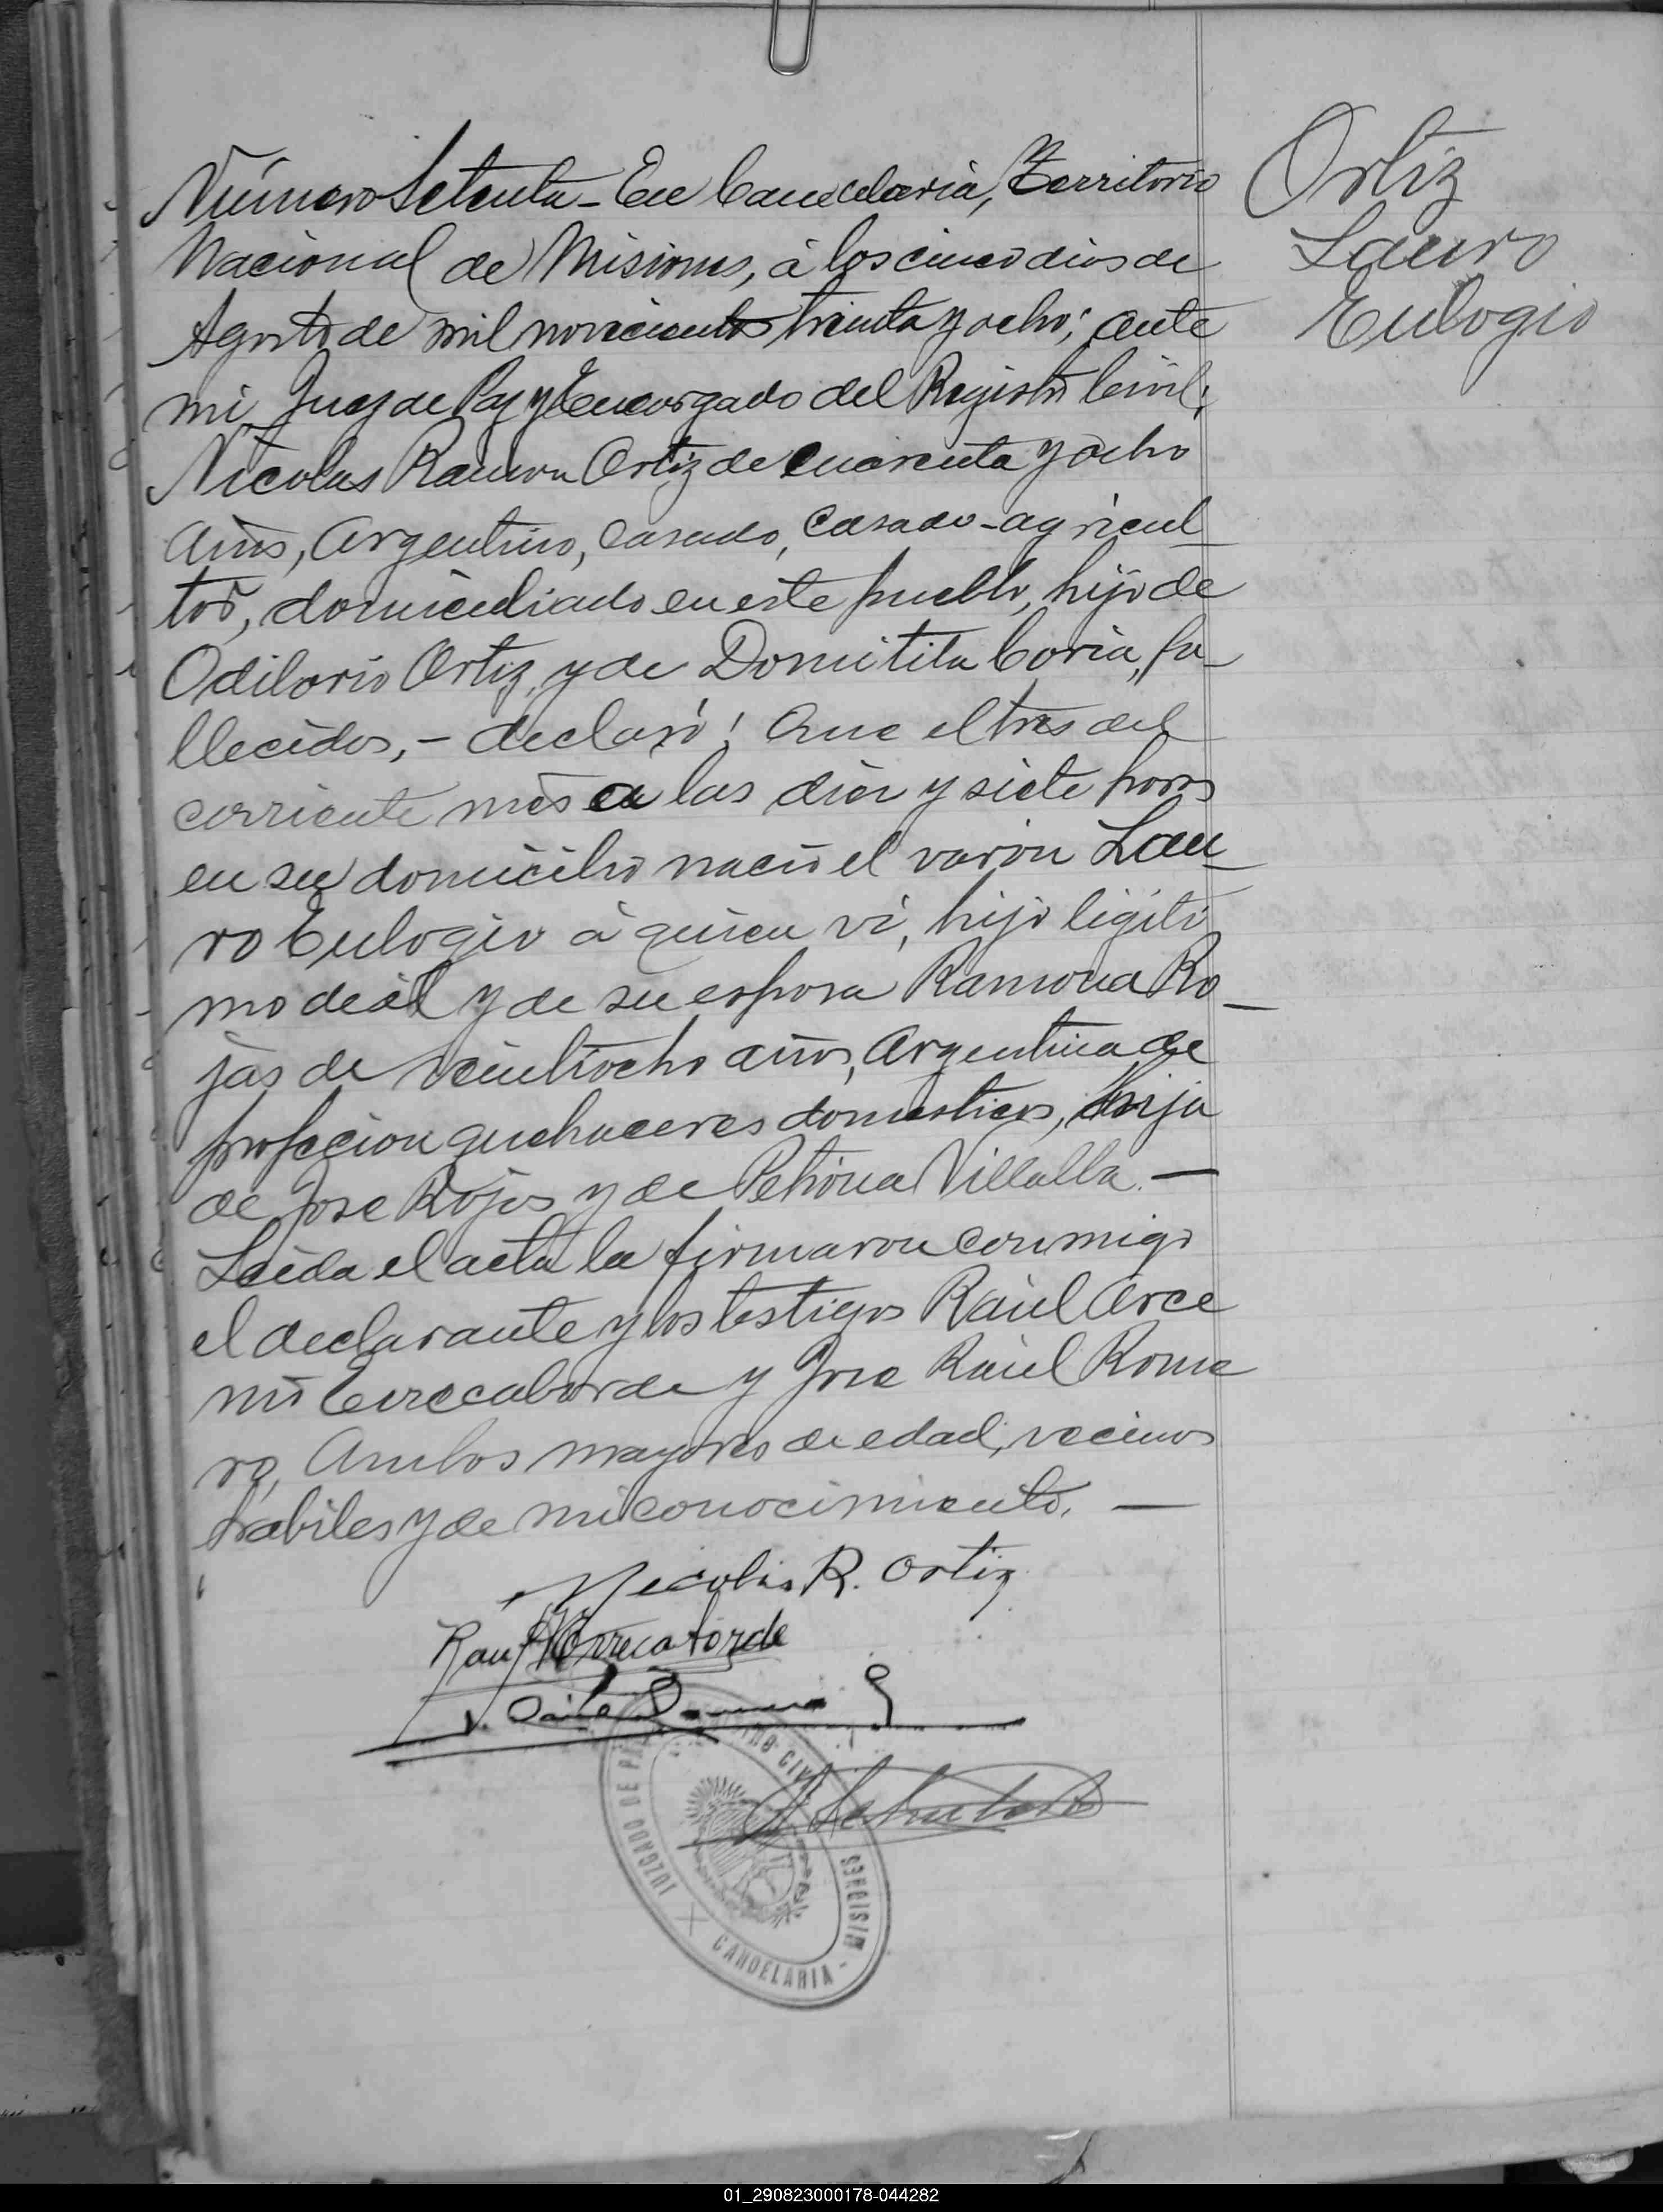 Número Setenta - En Candelaria, Territorio
Nacional de Misiones, á los cinco dias de
Agosto de mil novecientos treinta y ocho; ante
mi Juez de Paz y Encargado del Registro Civil;
Nicolas Ramon Ortiz de cuarenta y ocho
años, Argentino, casado, casado - agricul_
tor, domiciliado en este pueblo, hijo de
Odilorio Ortiz, y de Domitila Coria, fa_
llecidos, - declaró: Que el tres del
corriente mes a las diez y siete horas
en su domicilio nació el varon Lau_
ro Eulogio á quien vi, hijo legiti
mo de él y de su esposa Ramona Ro_
jas de veintiocho años, Argentina de
profecion quehaceres domesticos, hija
de Jose Rojas y de Petrona Villalba. -
Leida el acta la firmaron conmigo
el declarante y los testigos Raúl Arce
nio Errecaborde y Jose Raúl Rome
ro, Ambos mayores de edad, vecinos
habiles y de mi conocimiento. -
Nicolas R. Ortiz
Raul A Errecaborde
JUZGADO DE PAZ
CIVIL
CANDELARIA - MISIONES
Ortiz
Lauro
Eulogio
01_290823000178-044282